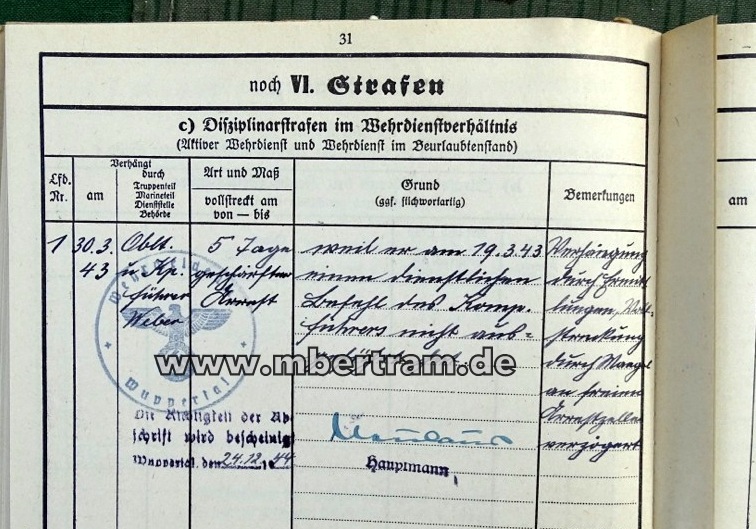 31
noch VI. Strafen
c) Disziplinarstrafen im Wehrdienstverhältnis
(Aktiver Wehrdienst und Wehrdienst im Beurlaubtenstand)
Lfd.
Nr.
am
Verhängt
durch
Truppenteil
Marineteil
Dienststelle
Behörde
Art und Maß
vollstreckt am
von — bis
Grund
(ggf. stichwortartig)
Bemerkungen
1
30.3.
43
Oblt.
u. Kp.
führer
Weber
5 Tage
geschärften
Arrest
weil er am 19.3.43
einen dienstlichen
Befehl des Komp.
führers nicht aus-
Verhängung
durch Ermitt
lungen, Voll-
streckung
durch Mangel
an freien
Arrestzellen
verzögert
Wuppertal
www.mbertram.de
Die Richtigkeit der Ab
schrift wird bescheinig
Wuppertal, den 24.12.1944
Hauptmann
am